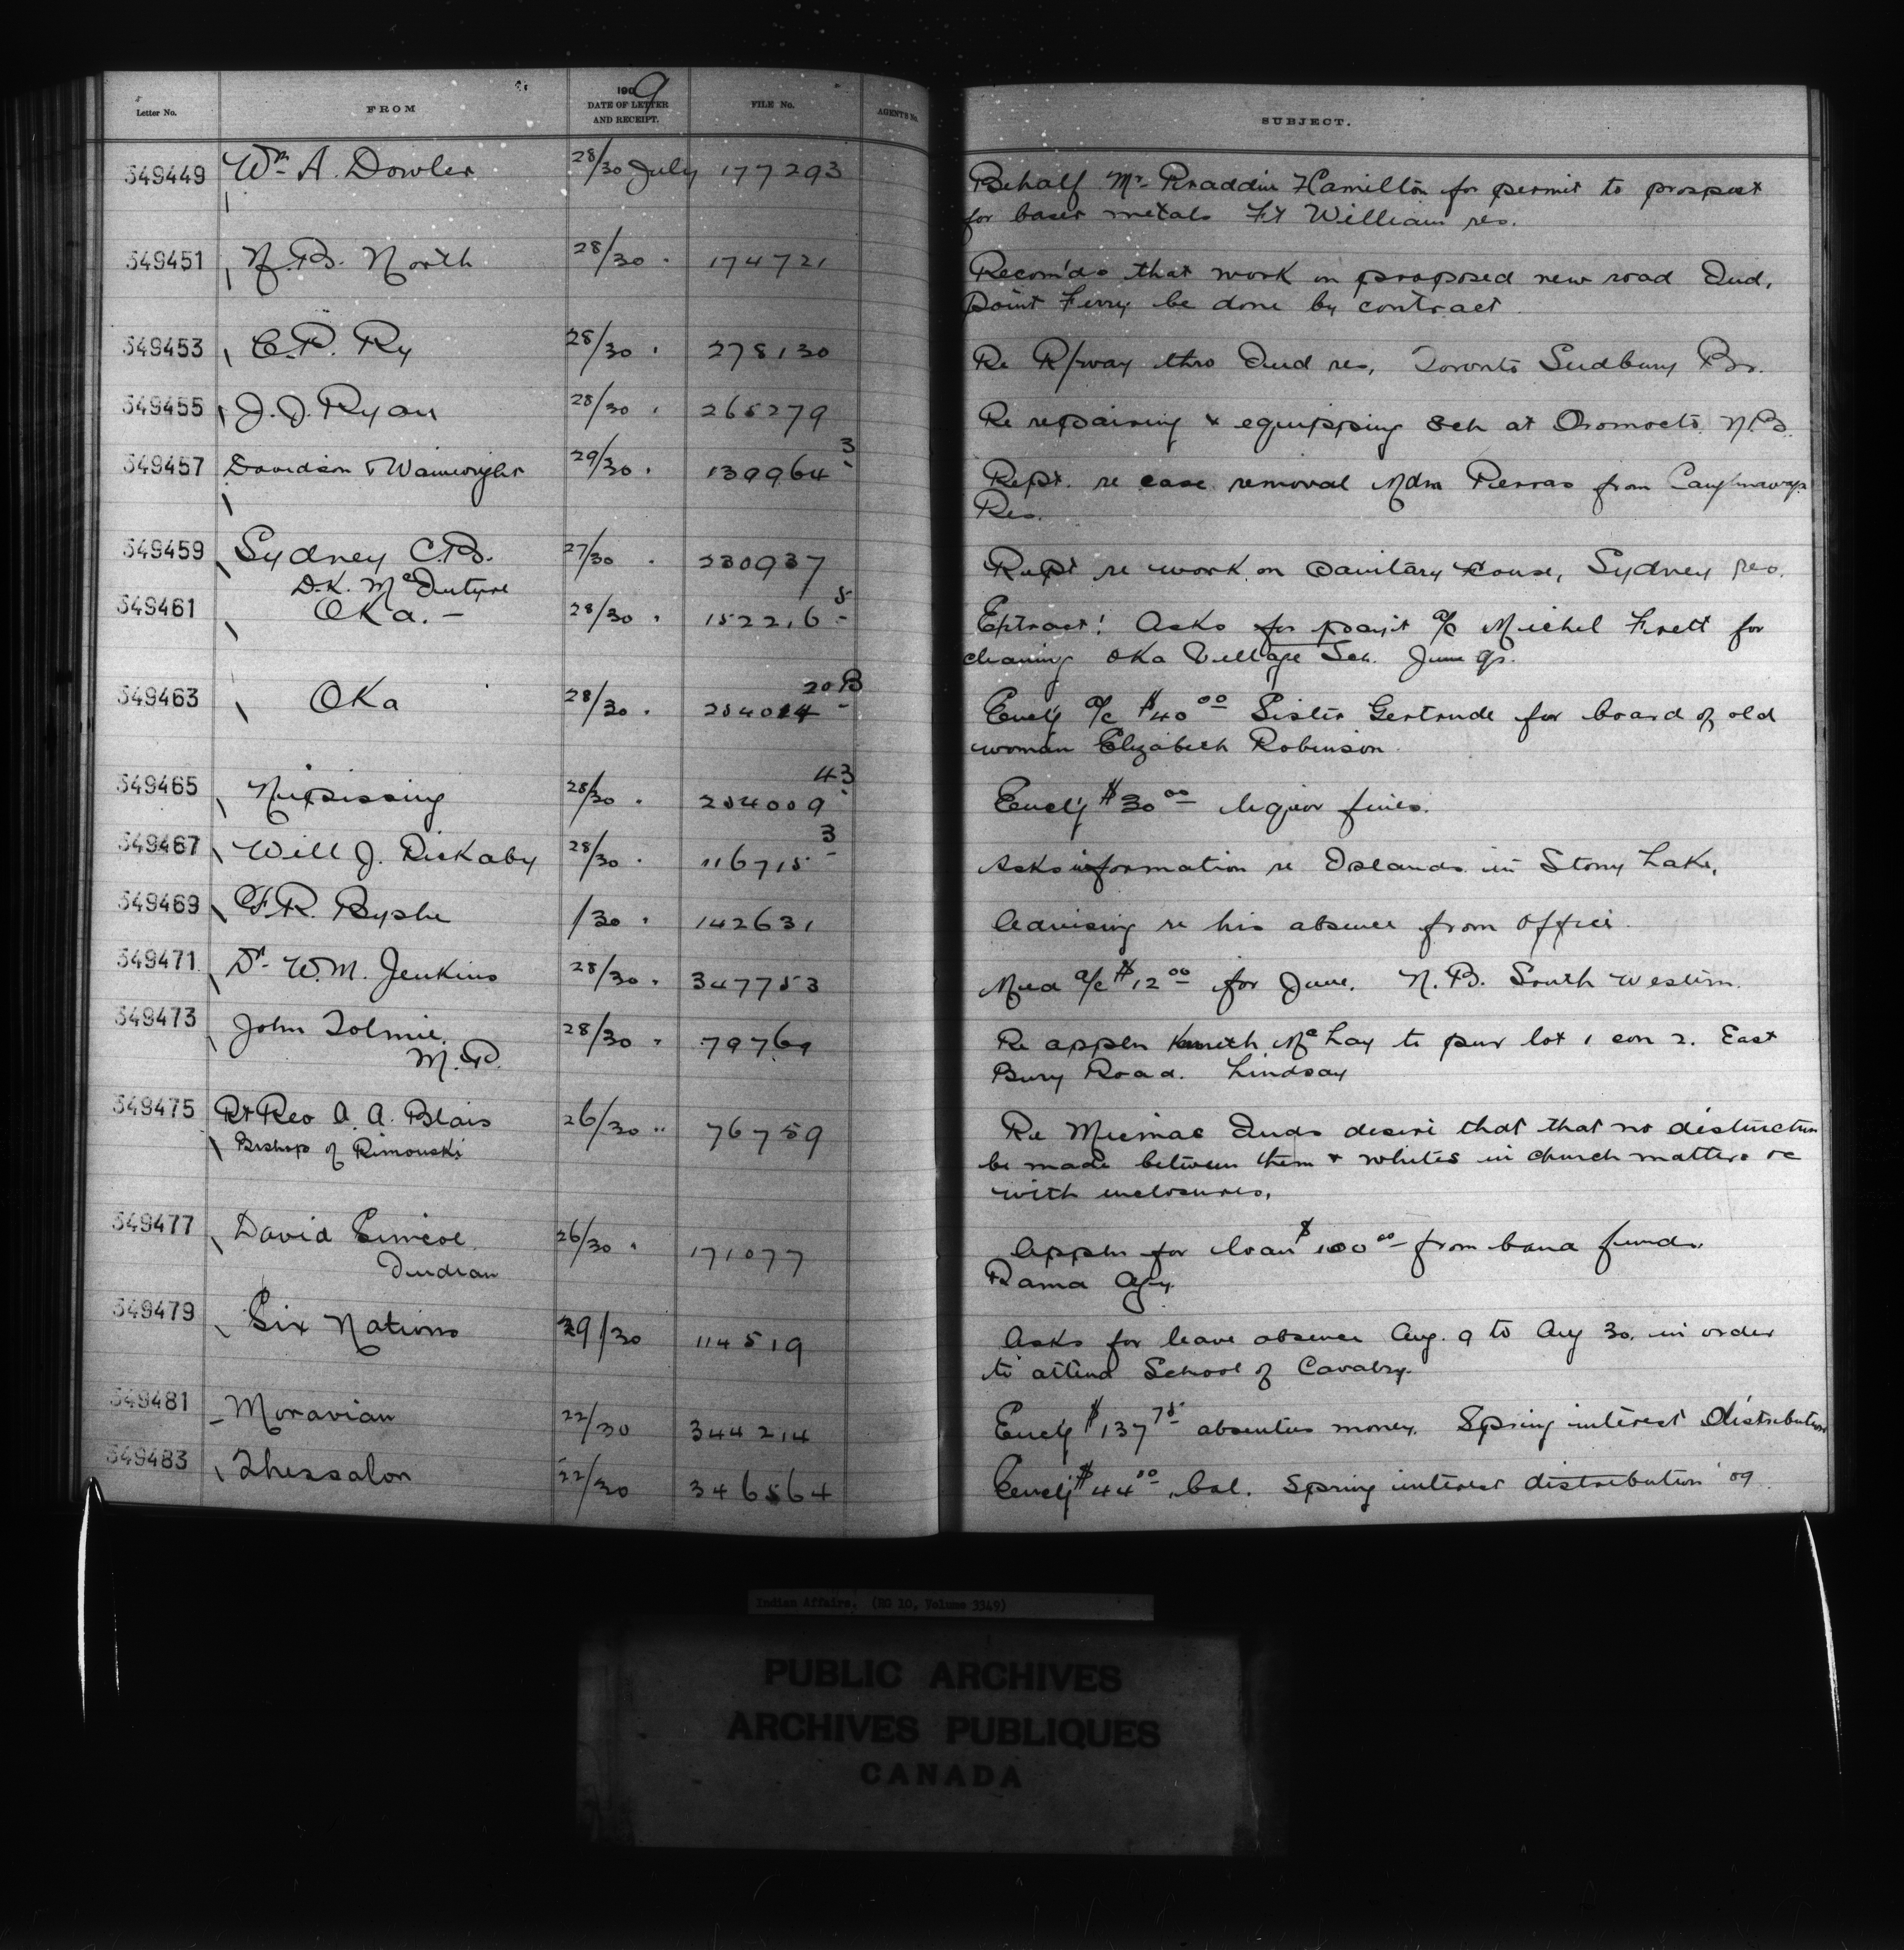 Letter No. FROM 1909 DATE OF LETTER AND RECEIPT. FILE No. AGENTS No. SUBJECT.
349449 Wm A. Dowler 28/30 July 177293 Behalf Mr. Hamilton for permit to prospect
for baser metals Ft William res.
349451 N.B. North 28/30 " 174721 Recom'ds that work on proposed new road Ind.
Point Ferry be done by contract
349453 C.P. Ry 28/30 " 278130 Re R/way thro Ind res, Toronto Sudbury Br.
349455 J.D. Ryan 28/30 " 265279 Re repairing & equipping Sch at Oromocto N.B.
349457 Davidson & Wainwright 29/30 " 139964-3 Rept. re case removal Mdm Perras from Caughnawaga
Res.
349459 Sydney C.B. 27/30 " 230937 Rept re work on Sanitary House, Sydney res.
D.K. McIntyre
349461 Oka. - 28/30 " 152216-5 Extract: Asks for pay't a/c Michel Frett for
cleaning Oka Village Sch. June qr.
349463 Oka 28/30 " 254014-20B Encl'g a/c $40.00 Sister Gertrude for board of old
woman Elizabeth Robinson.
349465 Nipissing 28/30 " 254009-43 Encl'g $30.00 liquor fines.
349467 Will J. Rickaby 28/30 " 116715-3 Asks information re Islands in Stony Lake,
349469 F.R. Byshe /30 " 142631 Advising re his absence from office.
349471 Dr. W.M. Jenkins 28/30 " 347753 Med a/c $12.00 for June. N.B. South Western.
349473 John Tolmie. 28/30 " 79769 Re appln Kenneth McLay to pur lot 1 con 2. East
M.P. Bury Road. Lindsay
349475 Rt Rev A. A. Blais 26/30 " 76759 Re Micmac Inds desire that that no distinction
Bishop of Rimouski be made between them & whites in church matters &c
with enclosures.
349477 David Simcoe 26/30 " 171077 Appln for loan $100.00 from band funds.
Indian Rama Agy.
349479 Six Nations 29/30 114519 Asks for leave absence Aug. 9 to Aug 30. in order
to attend School of Cavalry.
349481 Moravian 22/30 344214 Encl'g $137.75 absentees money. Spring interest distribution
349483 Thessalon 22/30 346564 Encl'g $44.50 bal. Spring interest distribution '09.
Indian Affairs. (RG 10, Volume 3349)
PUBLIC ARCHIVES
ARCHIVES PUBLIQUES
CANADA